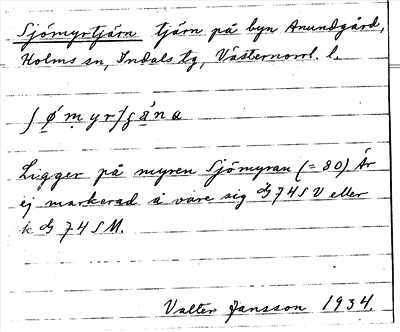 Sjömyrtjärn tjärn på byn Anundgård,
Holms sn, Indals tg, Västernorrl. l.
Ligger på myren Sjömyran (= 80) Är
ej markerad å vare sig G 74 S V eller
k G 74 S M.
Valter Jansson 1934.